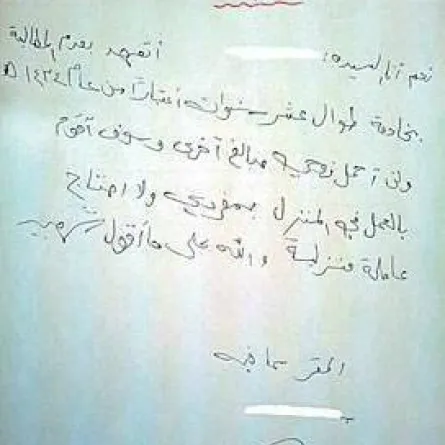 نعم أنا السيدة: أتعهد بعدم المطالبة
بخادمة طوال عشر سنوات اعتباراً من عام ١٤٣٤ هـ
ولن أحمل زوجي مبالغ أخرى وسوف أقوم
بالعمل في المنزل بمفردي ولا احتاج
عاملة منزلية والله على ما أقول شهيد
المقر بما فيه